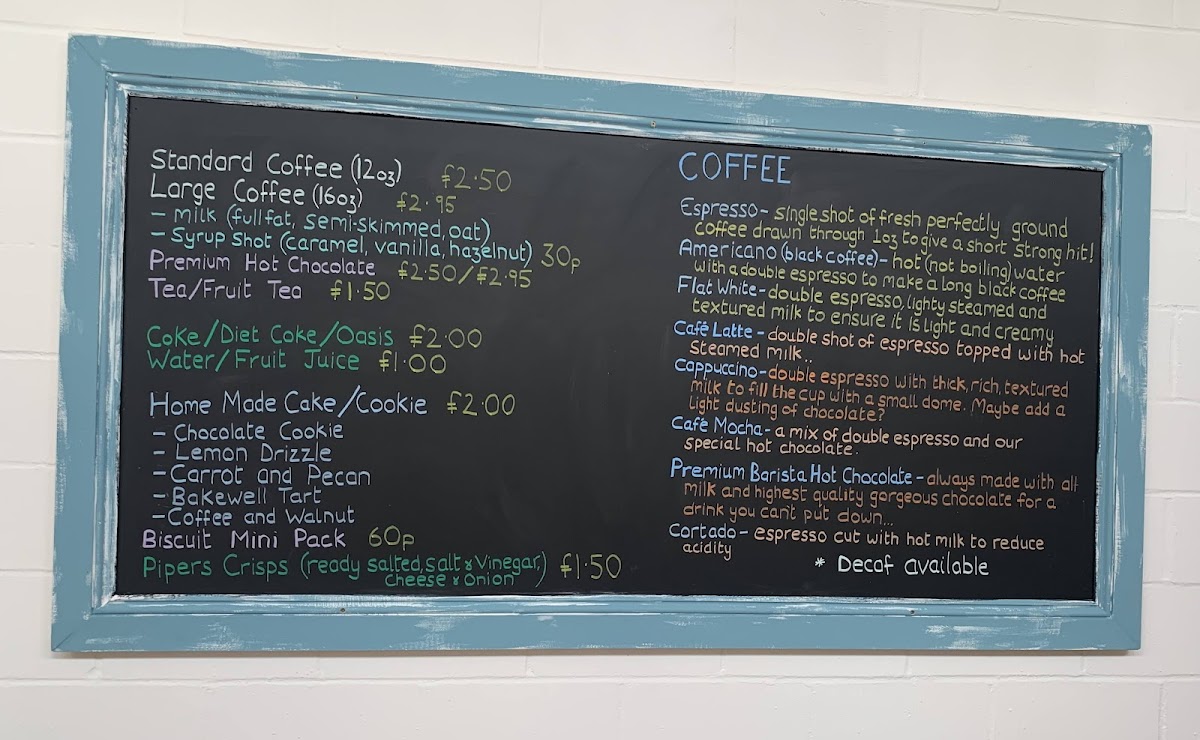 Standard Coffee (12oz) £2.50
Large Coffee (16oz) £2.95
- Milk (full fat, semi-skimmed, oat)
- Syrup Shot (caramel, vanilla, hazelnut) 30p
Premium Hot Chocolate £2.50/£2.95
Tea/Fruit Tea £1.50
Coke/Diet Coke/Oasis £2.00
Water/Fruit Juice £1.00
Home Made Cake/Cookie £2.00
- Chocolate Cookie
- Lemon Drizzle
- Carrot and Pecan
- Bakewell Tart
- Coffee and Walnut
Biscuit Mini Pack 60p
Pipers Crisps (ready salted, salt & Vinegar, £1.50
cheese & onion)
COFFEE
Espresso - single shot of fresh perfectly ground
coffee drawn through 1oz to give a short strong hit!
Americano (black coffee) - hot (not boiling) water
with a double espresso to make a long black coffee
Flat White - double espresso, lighty steamed and
textured milk to ensure it is light and creamy
Café Latte - double shot of espresso topped with hot
steamed milk..
Cappuccino - double espresso with thick, rich, textured
milk to fill the cup with a small dome. Maybe add a
light dusting of chocolate?
Café Mocha - a mix of double espresso and our
special hot chocolate.
Premium Barista Hot Chocolate - always made with all
milk and highest quality gorgeous chocolate for a
drink you can't put down...
Cortado - espresso cut with hot milk to reduce
acidity
* Decaf available